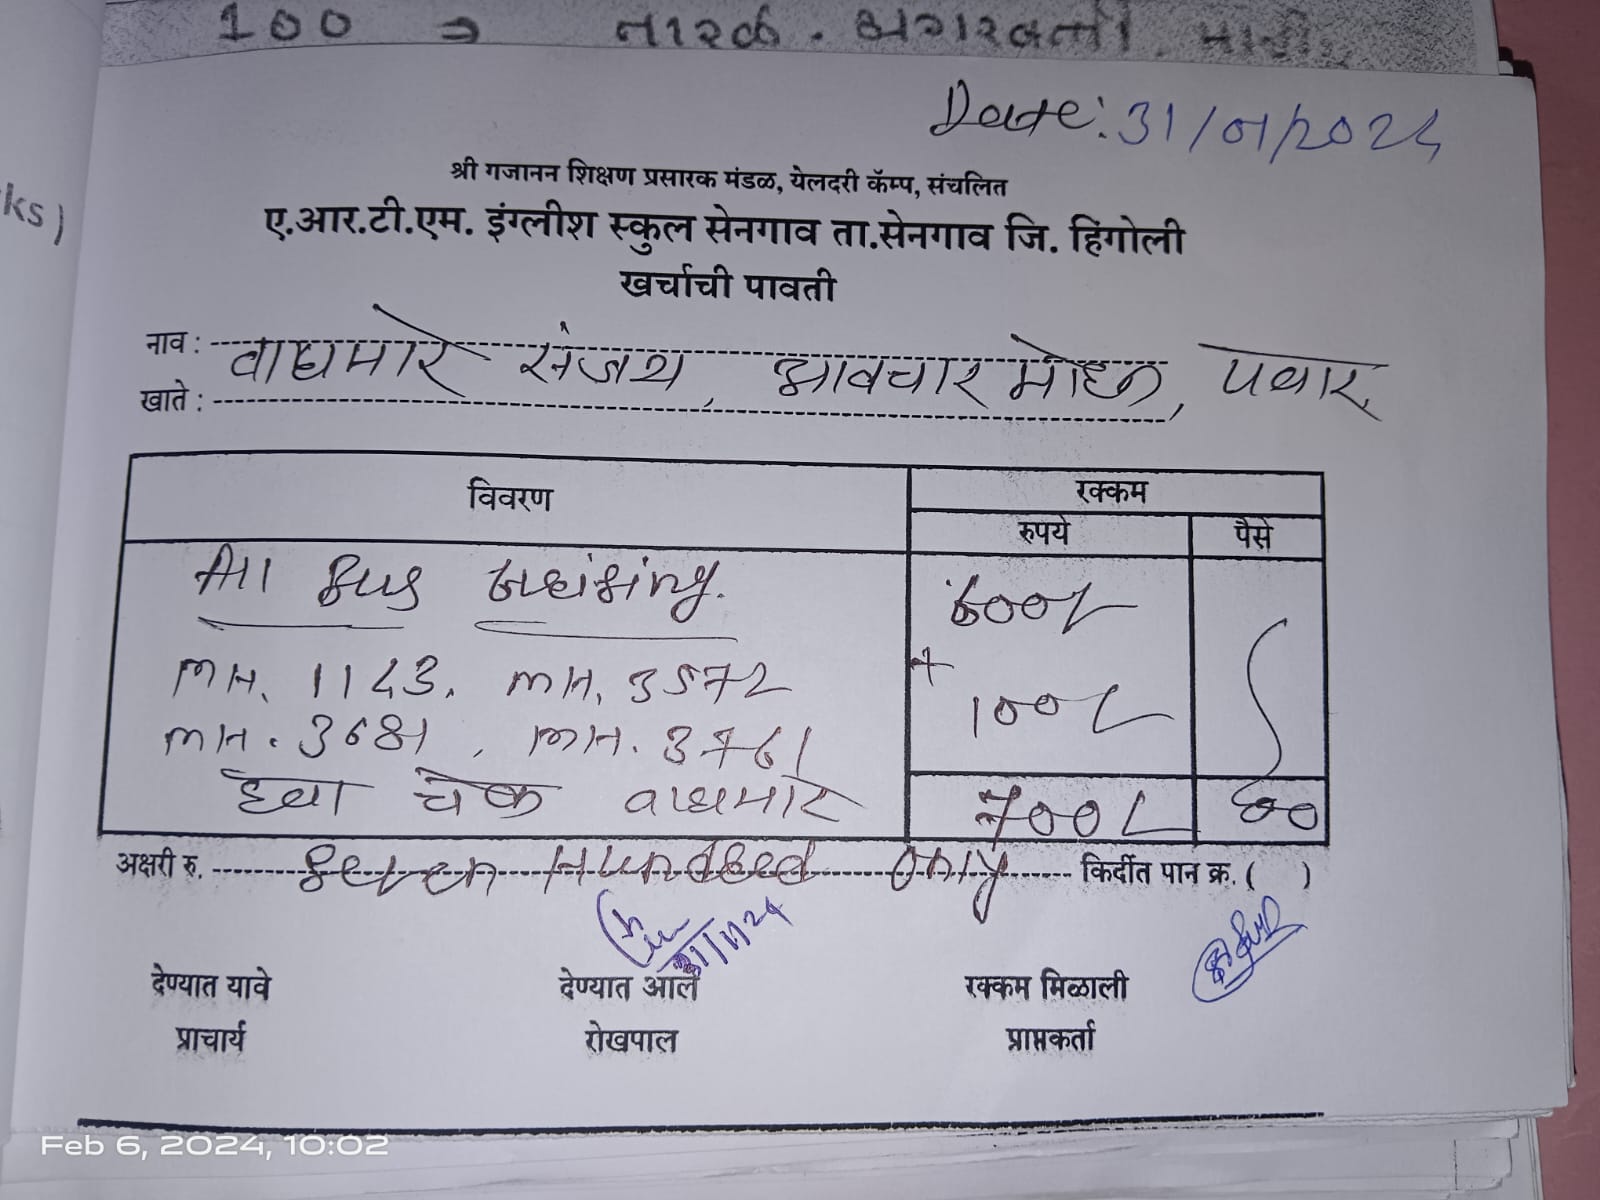 100 → नारळ. अगरबत्ती.
ks)
Date: 31/01/2024
श्री गजानन शिक्षण प्रसारक मंडळ, येलदरी कॅम्प, संचलित
ए.आर.टी.एम. इंग्लीश स्कुल सेनगाव ता.सेनगाव जि. हिंगोली
खर्चाची पावती
नाव : वाघमारे संजय, आवचार मोहन, पवार
खाते :
विवरण रक्कम
रुपये पैसे
All Bus 600/-
MH. 1143, MH. 3572 + 100/-
MH. 3681, MH. 3761
हवा चेक वाघमारे 700/- 00
अक्षरी रु. Seven Hundred only किर्दीत पान क्र. ( )
31/1/24
देण्यात यावे देण्यात आले रक्कम मिळाली
प्राचार्य रोखपाल प्राप्तकर्ता
Feb 6, 2024, 10:02